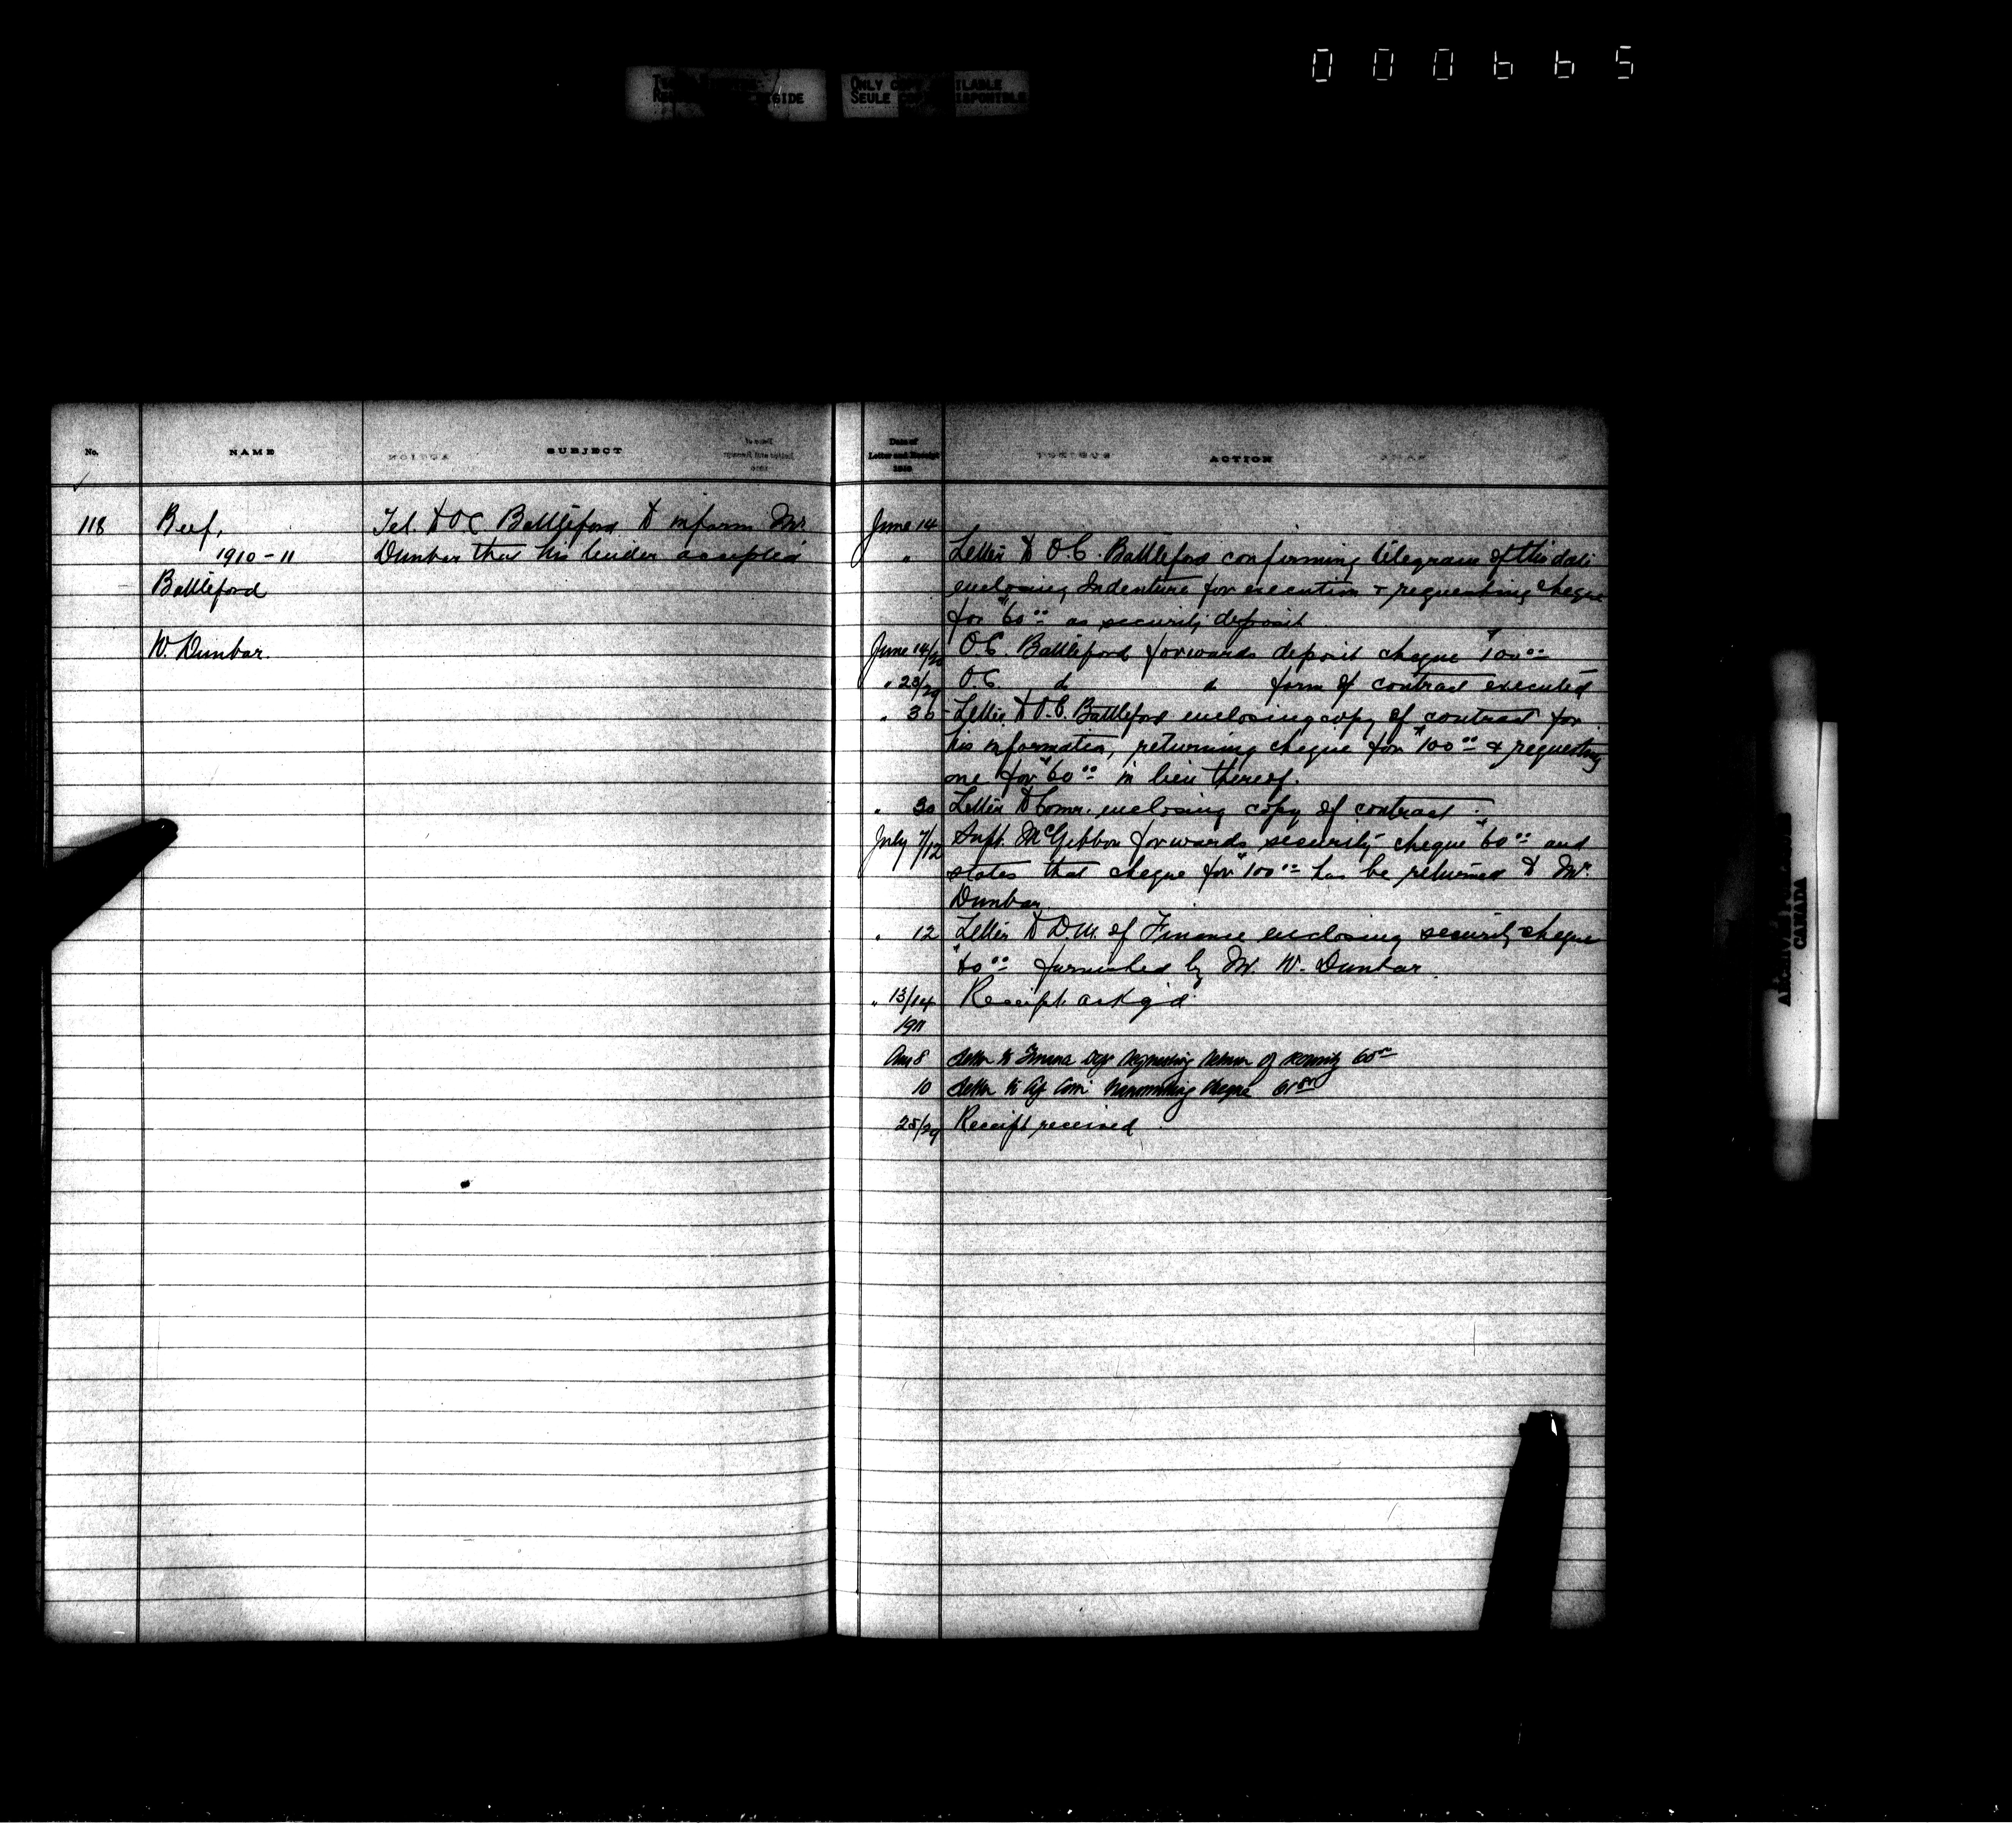 000665
ONLY COPY AVAILABLE
SEULE COPIE DISPONIBLE
No.
NAME
SUBJECT
Date of
Letter and Receipt
1910
ACTION
118
Beef,
1910-11
Battleford
W. Dunbar.
Tel to OC Battleford to inform Mr.
Dunbar that his tender accepted
June 14
" Letter to O.C. Battleford confirming telegram of this date
enclosing Indenture for execution & requesting cheque
for $60.00 as security deposit
June 14/20 O.C. Battleford forwards deposit cheque $100.00
" 23/29 O.C. do do form of contract executed
" 30 - Letter to O.C. Battleford enclosing copy of contract for
his information, returning cheque for $100.00 & requesting
one for $60.00 in lieu thereof.
" 30 Letter to Comr. enclosing copy of contract.
July 7/12 Supt. McGibbon forwards security cheque $60.00 and
states that cheque for $100.00 has be returned to Mr.
Dunbar.
" 12 Letter to D.M. of Finance enclosing security cheque
$60.00 furnished by Mr. W. Dunbar.
" 13/14 Receipt ackg'd
1911
Aug 8 Letter to Finance Dept requesting return of security 60.00
10 Letter to Comr transmitting cheque
25/29 Receipt received
CANADA